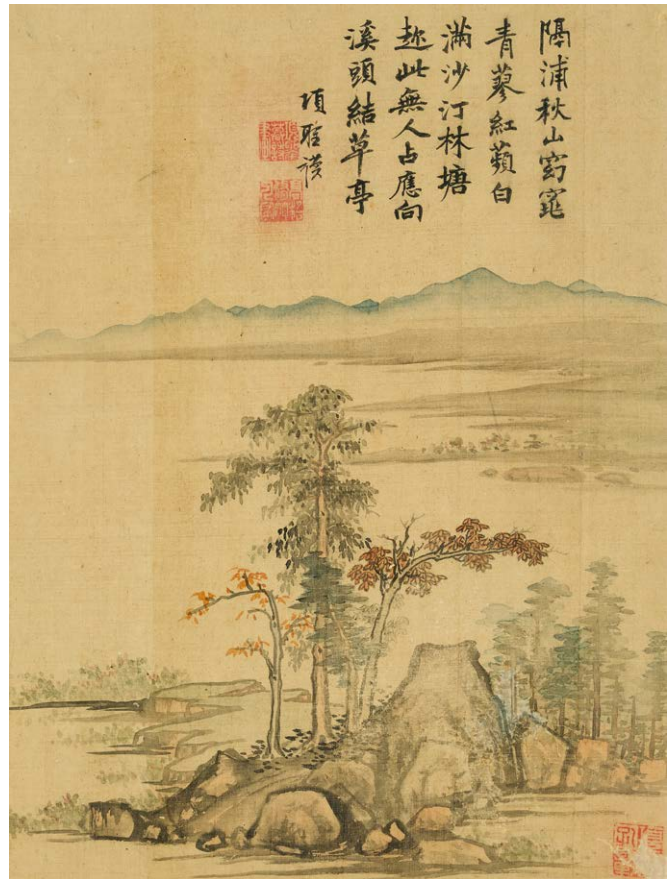 隔浦秋山窈窕
青蓼紅蘋白
滿沙汀林塘
趂此無人占應向
溪頭結草亭
項聖謨